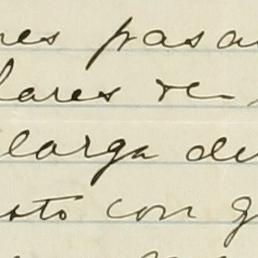 nes pasa
lares de
larga de
sto con g